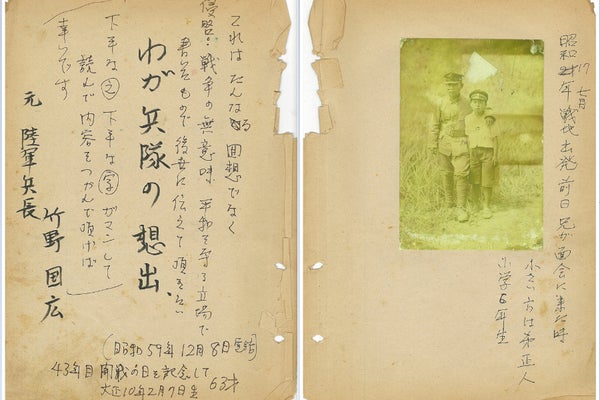 これはたんなる回想でなく
侵略戦争の無意味 平和を守る立場で
書いたもので後世に伝えて頂きたい
わが兵隊の想出、
下手な文 下手な字 ガマンして
読んで内容をつかんで頂けば
幸いです
元 陸軍兵長
竹野国広
(昭和59年12月8日完結)
43年目開戦の日を記念して
大正10年2月7日生 63才
昭和17年七月戦地出発前日 兄が面会に来た時
小さい方は弟正人
小学6年生